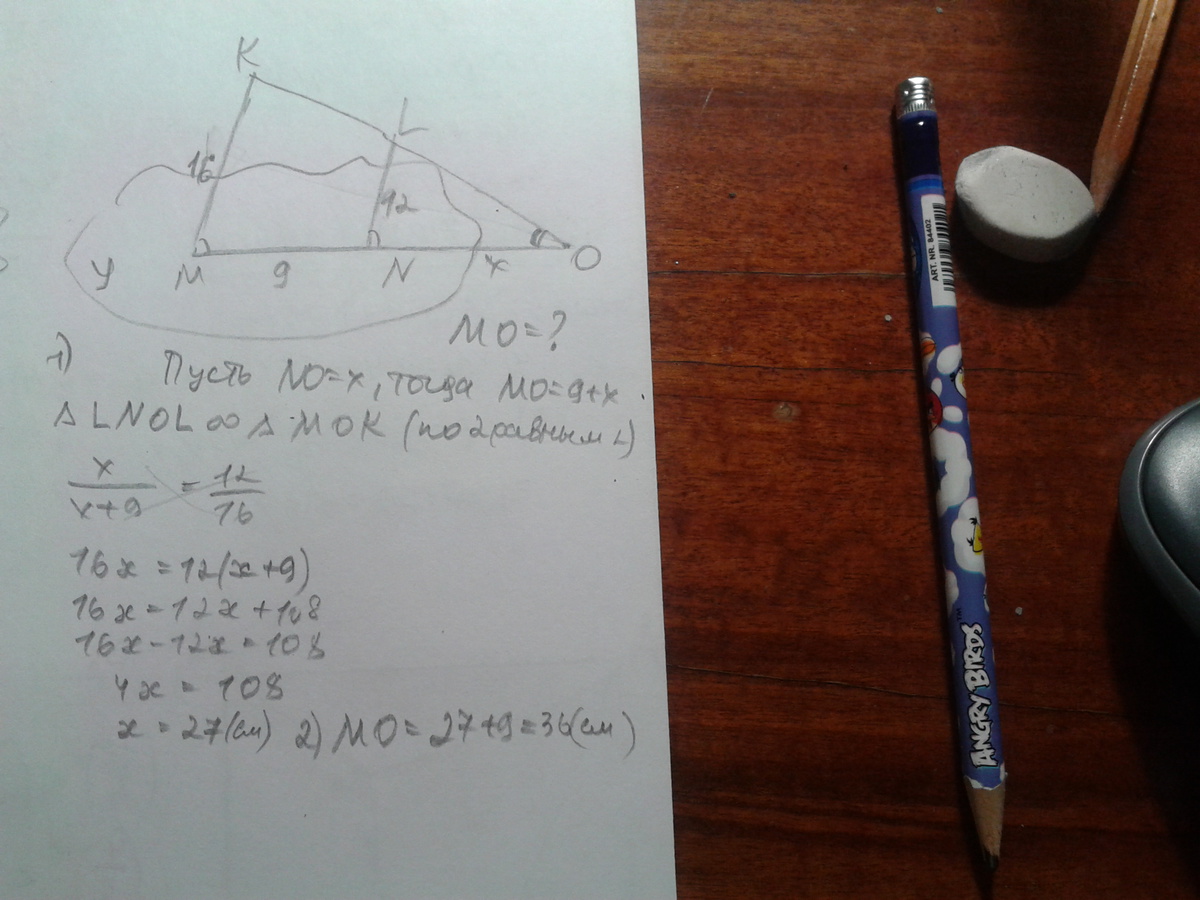 K
L
16
12
У
M
9
N
x
O
MO=?
1)
Пусть NO=x, тогда MO=9+x.
Δ LNOL ∞ Δ MOK (по 2 равным ∠)
x/x+9 = 12/16
16x = 12(x+9)
16x = 12x + 108
16x - 12x = 108
4x = 108
x = 27(см) 2) MO = 27+9=36(см)
ART. NR. 84402
ANGRY BIRDS™